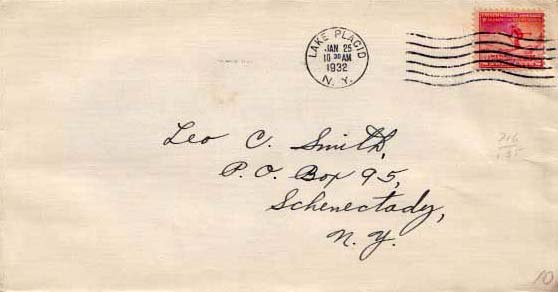 LAKE PLACID
JAN 25
10 30 AM
1932
N. Y.
Leo C. Smith,
P. O. Box 95,
Schenectady,
N. Y.
10